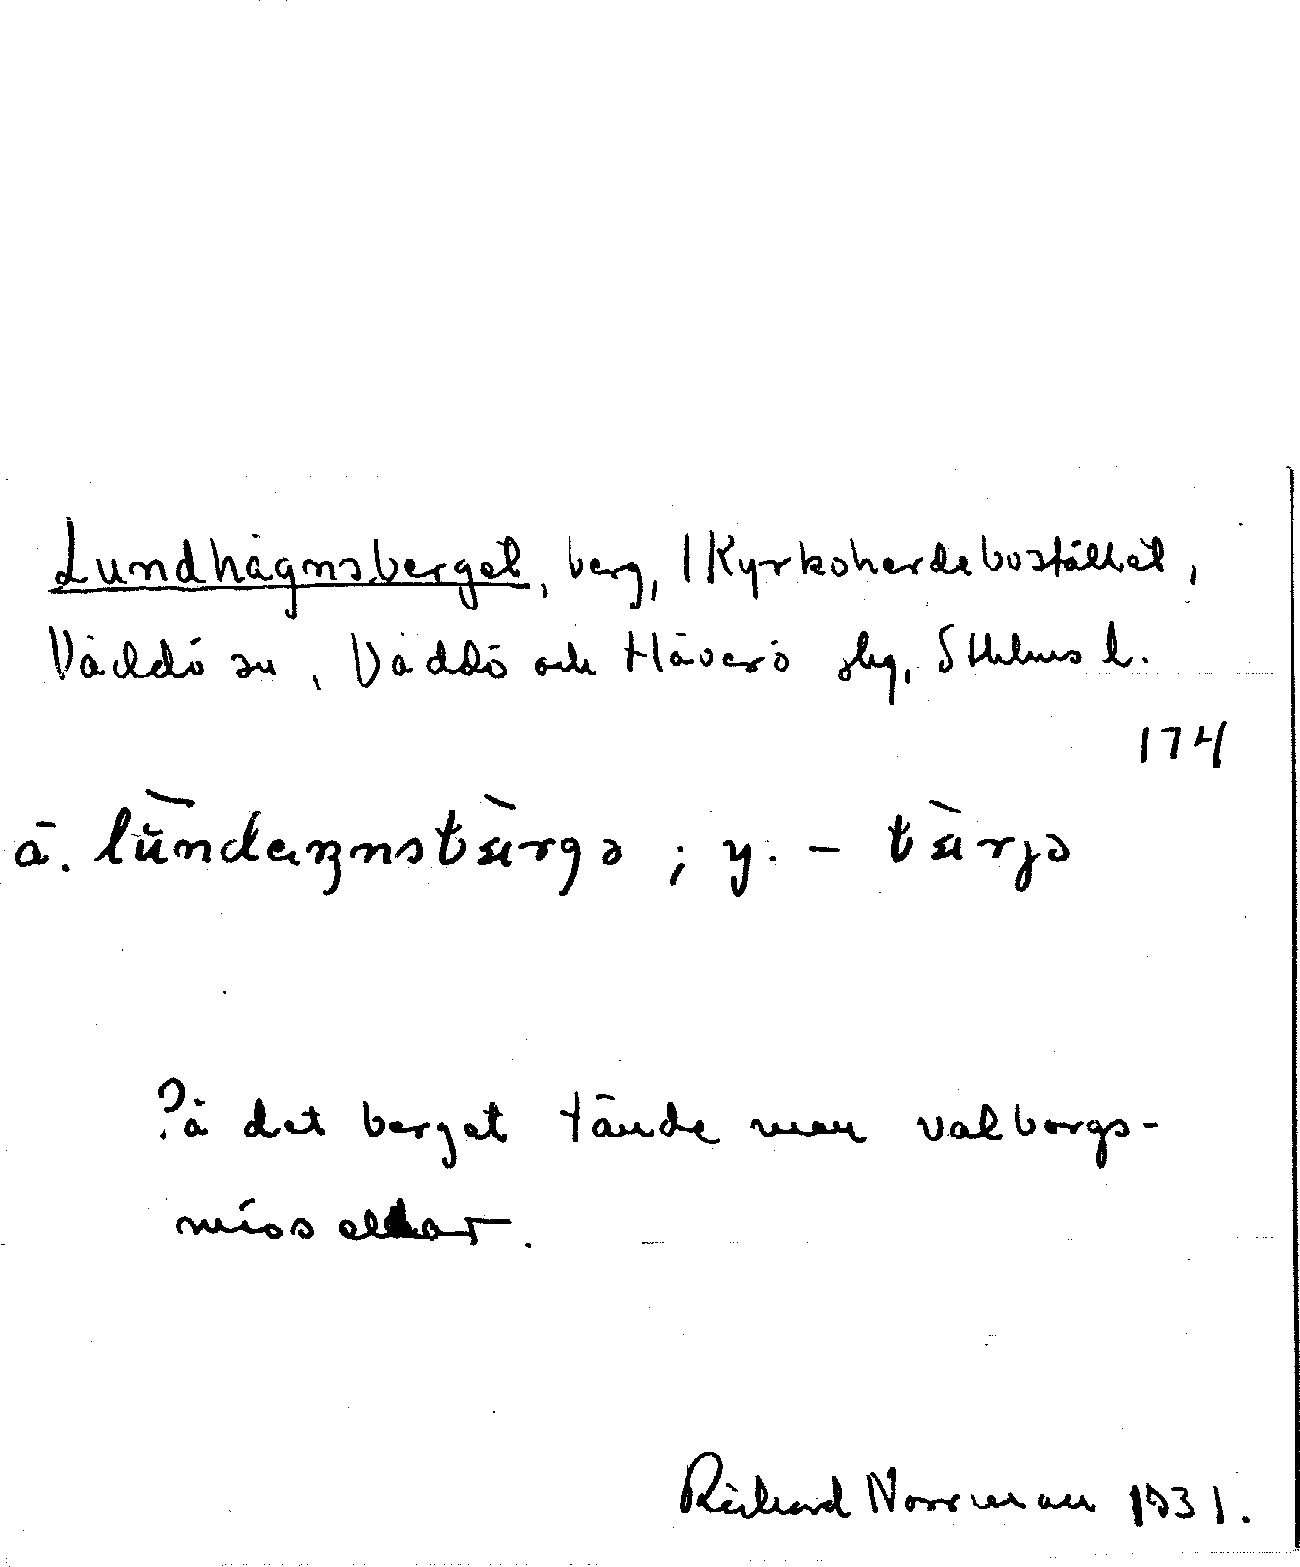 Lundhägnsberget, berg, 1 Kyrkoherdebostället,
Väddö sn, Väddö och Häverö skg, Sthlms l.
174
ä. ; y. –
På det berget tände man valborgs-
mäss eldar.
Richard Norrman 1931.